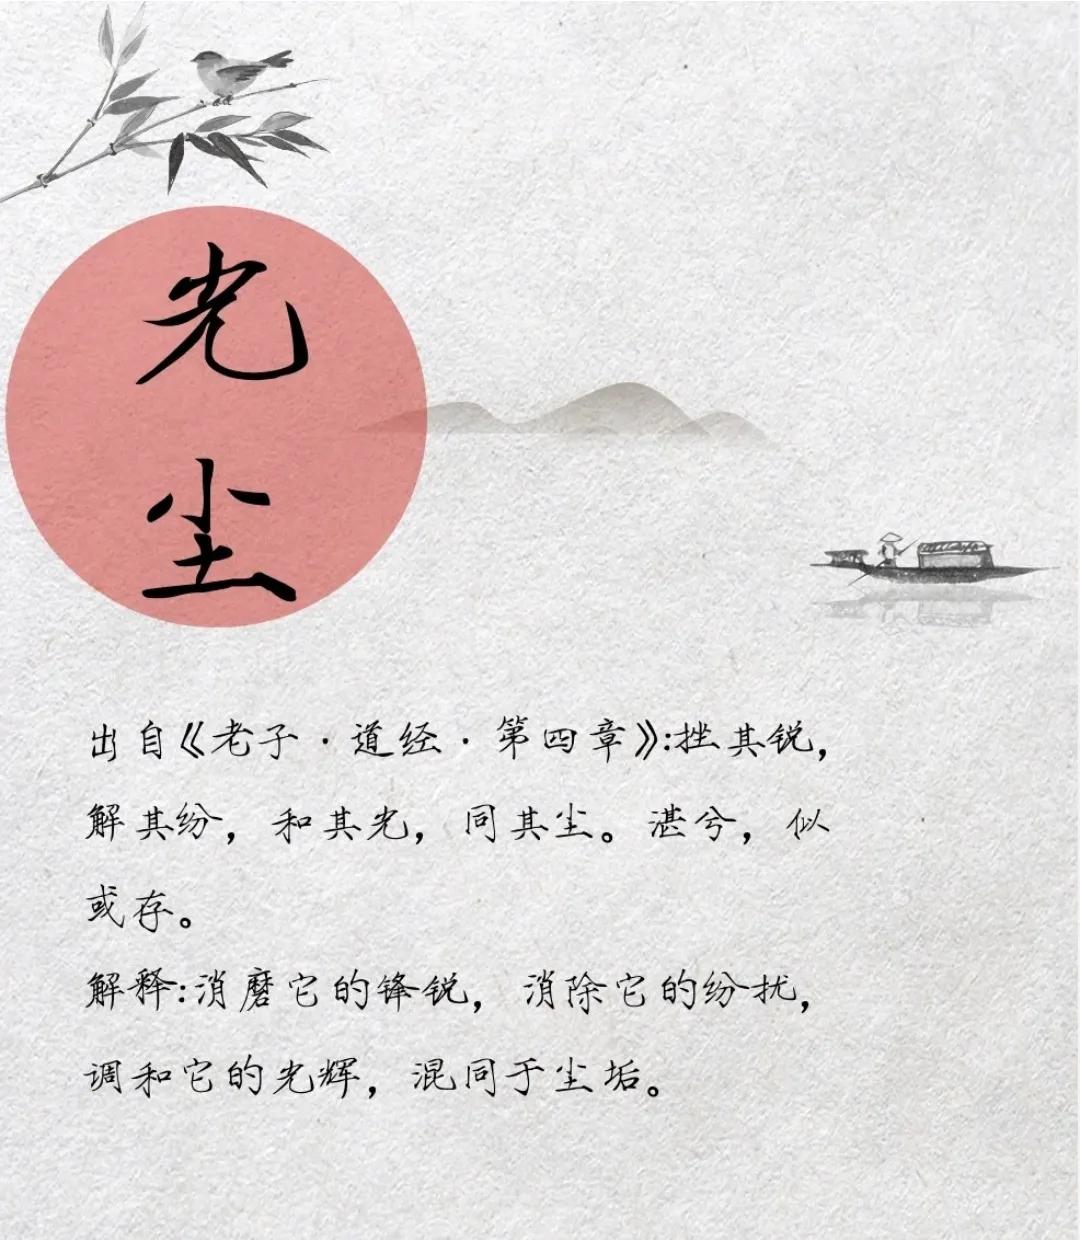 光
尘
出自《老子·道经·第四章》:挫其锐，
解其纷，和其光，同其尘。湛兮，似
或存。
解释:消磨它的锋锐，消除它的纷扰，
调和它的光辉，混同于尘垢。